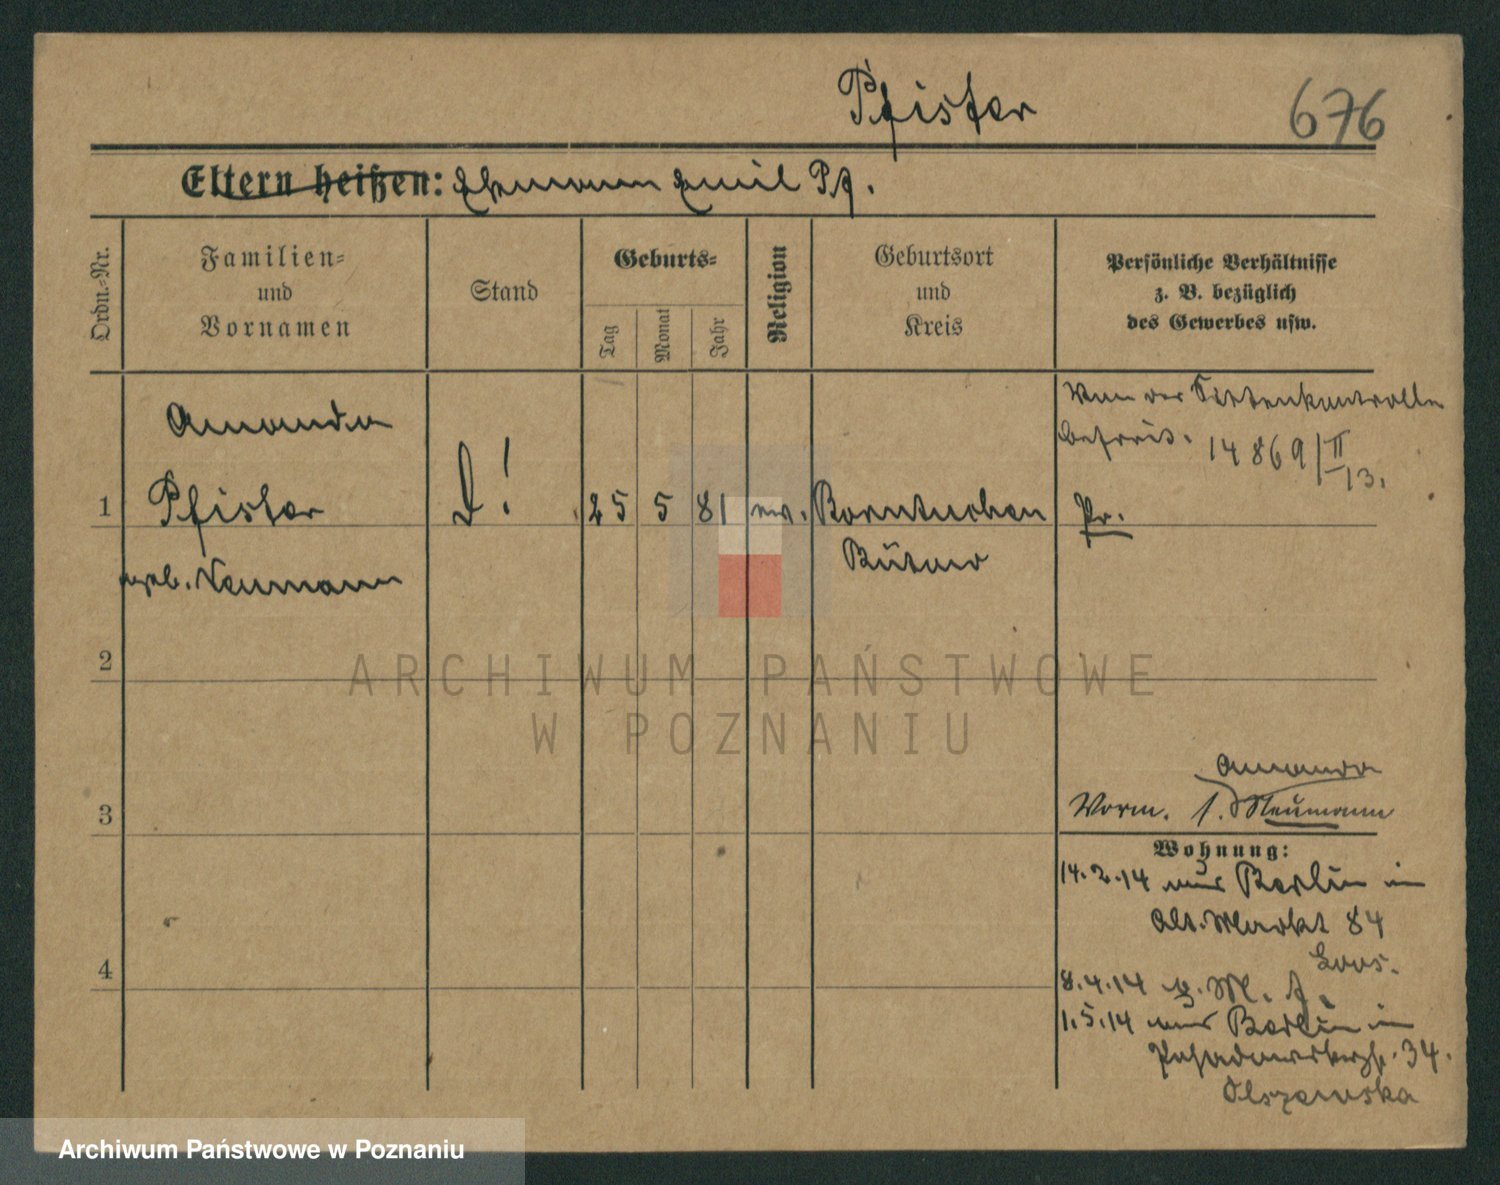 Pfister
676
Eltern heißen: Ehemann Emil Pf.
Ordn.-Nr.
Familien- und Vornamen
Stand
Geburts-
Tag
Monat
Jahr
Religion
Geburtsort und Kreis
Persönliche Verhältnisse
z. B. bezüglich
des Gewerbes usw.
Amanda
Von der Sittenkontrolle
befreit. 14869/II 13.
1 Pfister D! 25 5 81 ev. Borntuchen Pr.
geb. Neumann Bütow
2
ARCHIWUM PAŃSTWOWE
W POZNANIU
Amanda
3 Vorm. f. Neumann
Wohnung:
14.2.14 aus Berlin in
Alt. Markt 84
4
8.4.14
1.5.14 aus Berlin in
34.
Olszewska
Archiwum Państwowe w Poznaniu